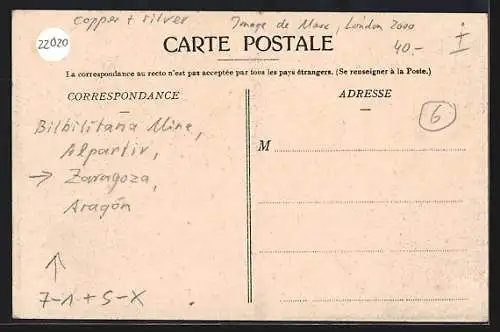 copper + silver
Image de Marc, London 2000
22020
CARTE POSTALE
40.-
La correspondance au recto n'est pas acceptée par tous les pays étrangers. (Se renseigner à la Poste.)
CORRESPONDANCE
ADRESSE
6
Bilbilitana Mine,
Alpartir,
→ Zaragoza,
Aragón
M
↑
7-1 + 5-X